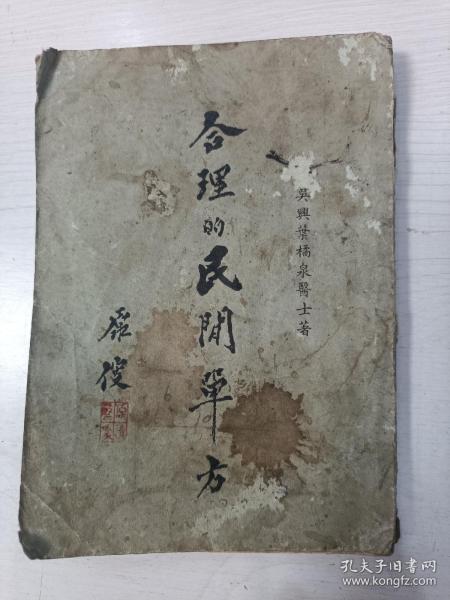 吳興葉橘泉醫士著
合理的民間單方
孔夫子旧书网
www.kongfz.com